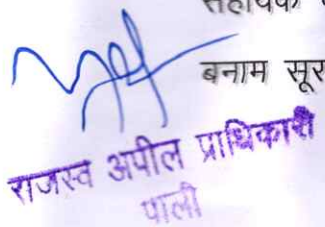 सहायक
बनाम सूर
राजस्व अपील प्राधिकारी
पाली